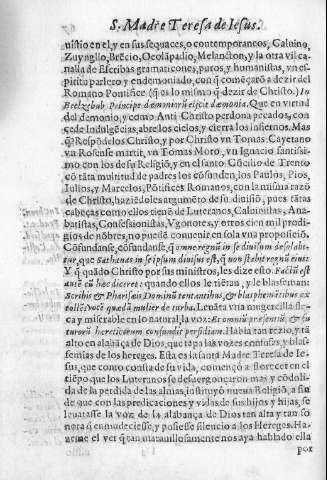 S. Madre Teresa de Iesus.
uistio en el, y en sus sequaces, o contemporaneos, Caluino,
Zuynglio, Brẽcio, Ocolãpadio, Melancton, y la otra vil ca-
nalla de Escribas gramaticones, puros, y humanistas, vn es-
piritu parlero y endemoniado, con q̃ començarõ a dezir del
Romano Pontifice (q̃ es lo mismo q̃ dezir de Christo.) In
Beelzebub Principe dæmoniorũ eijcit dæmonia. Que en virtud
del demonio, y como Anti Christo perdona pecados, con-
cede Indulgẽcias, abre los cielos, y cierra los infiernos. Mas
q̃ Respõdelos Christo, y por Christo vn Tomas Cayetano
vn Rosense martir, vn Tomas Moro, vn Ignacio santissi-
mo con los de su Religiõ, y en el santo Cõcilio de Trento
cõ tãta multitud de padres los cõfunden, los Paulos, Pios,
Iulios, y Marcelos, Põtifices Romanos, con la misma razõ
de Christo, haziẽdoles argumẽto de su diuisiõ, pues tãtas
cabeças como ellos tienẽ de Luteranos, Caluinistas, Ana-
batistas, Confessionistas, Vgonotes, y otros cien mil prodi-
gios de nõbres, no puedẽ conuenir en sola vna proposiciõ,
Cõfundanse, cõfundanse, q̃ omne regnũ in se diuisum desolabi-
tur, que Sathanas in se ipsum diuisus est, q̃ non stabit regnũ eius
Y q̃ quãdo Christo por sus ministros, les dize esto. Factũ est
autẽ cũ hæc diceret: quando ellos le tiẽtan, y le blasfeman:
Scribis & Pharisæis Dominũ tentantibus, & blasphemãtibus ex
tollẽs vocẽ quædã mulier de turba. Leuãta vna mugercilla fla-
ca y miserable en lo natural, la voz: Et omniũ præsentiũ, & fu-
turorũ hæreticorum confundit perfidiam. Habla tan rezio, y tã
alto en alabãça de Dios, que tapa las vozes confusas, y blas-
femias de los hereges. Esta es la santa Madre Teresa de Ie-
sus, que como consta de su vida, començò a florecer en el
tiẽpo que los Luteranos se desuergonçaron mas, y cõdoli-
da de la perdida de las almas, instituyò nueua Religiõ, a fin
de que con las predicaciones y vidas de sus hijos y hijas, se
leuãtasse la voz de la alabança de Dios tan alta y tan so-
nora q̃ enmudeciesse, y pusiesse silencio a los Hereges. Ha-
zeime el ver q̃ tan marauillosamente nos aya hablado ella
por